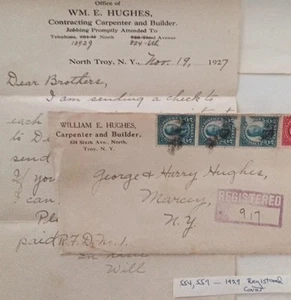 Office of
WM. E. HUGHES,
Contracting Carpenter and Builder.
Jobbing Promptly Attended To
Telephone, North
1092J 824-6th
North Troy, N. Y., Nov. 19, 1927
Dear Brothers,
I am sending a check to
each
to D
send
If you
can
Pl
paid
Will
WILLIAM E. HUGHES,
Carpenter and Builder.
824 Sixth Ave., North,
Troy, N. Y.
George & Harry Hughes,
Marcy,
N.Y.
R.F.D. No. 1.
REGISTERED
No. 917
554, 557 — 1927 Registered
Cover